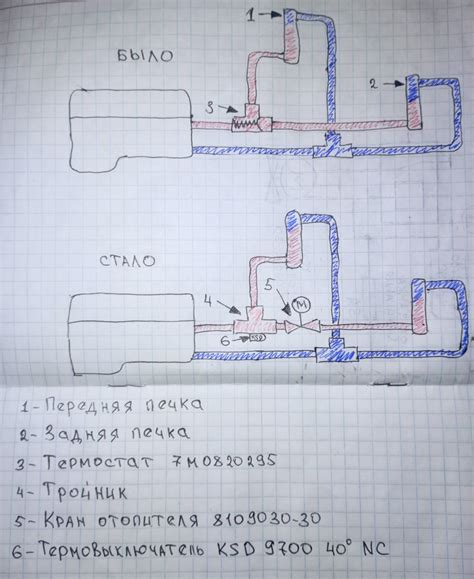 БЫЛО
1
2
3
СТАЛО
4
5
M
6
KSD
1 - Передняя печка
2 - Задняя печка
3 - Термостат 7М0820295
4 - Тройник
5 - Кран отопителя 8109030-30
6 - Термовыключатель KSD 9700 40° NC